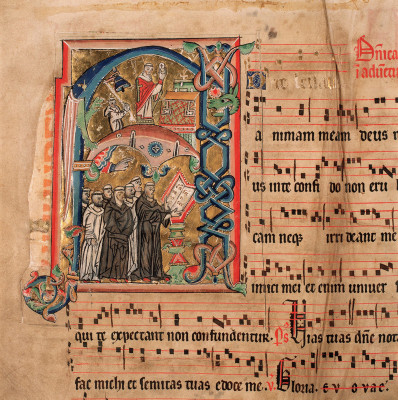 Dnica
i aduentu
a nimam meam deus m
us in te confi do non eru b
cam neqꝫ irri deant me
inimici mei et enim uniuer s
qui te expectant non confundentur. Ps Vias tuas dne not
fac michi et semitas tuas edoce me. v. Gloria. e v o vae.